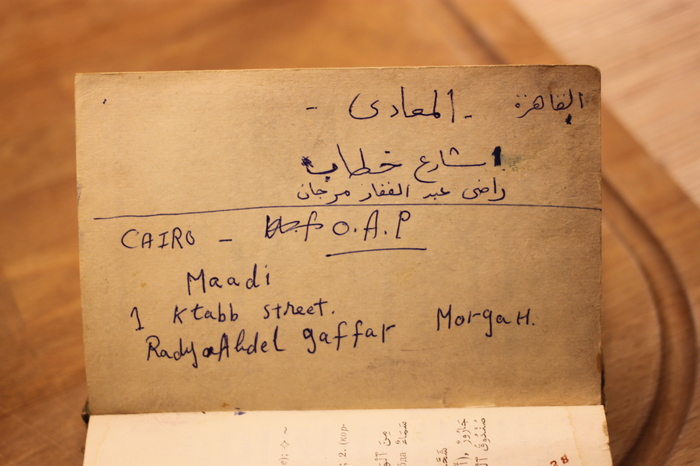 القاهرة - المعادى -
1 شارع خطاب
راضى عبد الغفار مرجان
CAIRO - O.A.P
Maadi
1 Ktabb street.
Rady Abdel gaffar MorgaH.